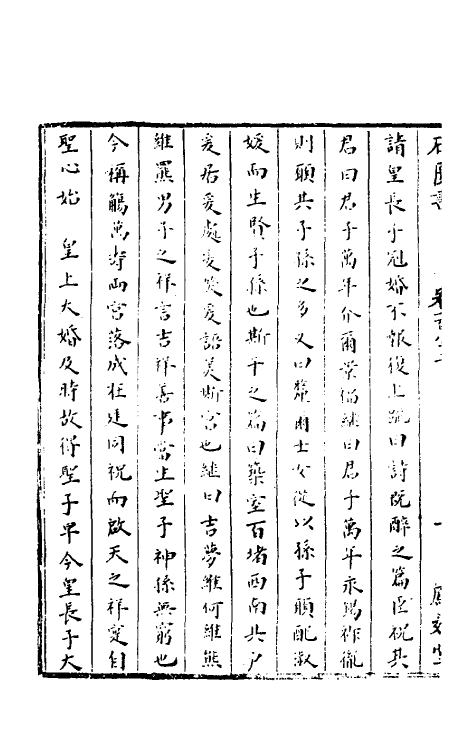 石匱書
請皇長子冠婚不報復上疏曰詩既醉之篇臣祝其
君曰君子萬年介爾景福繼曰君子萬年永錫祚胤
則願其子孫之多又曰釐爾士女從以孫子願配淑
媛而生賢子孫也斯干之篇曰築室百堵西南其戶
爰居爰處爰笑爰語美斯宮也繼曰吉夢維何維熊
維羆男子之祥言吉祥善事當上聖子神孫無窮也
今稱觴萬壽兩宮落成在廷同祝而啟天之祥寔自
聖心始 皇上大婚及時故得聖子早今皇長子大